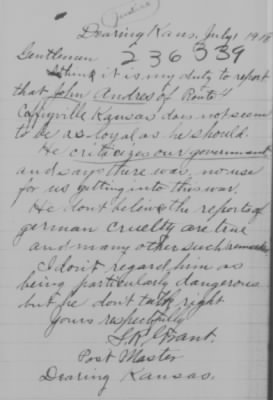 Justice
Dearing Kans, July 1 1918
Gentlemen 236339
I think it is my duty to report
that John Andres of Route 1
Coffeyville Kansas does not seem
to be as loyal as he should.
He criticizes our government
and says there was no use
for us getting into this war.
He dont believe the reports of
german cruelty are true
and many other such remarks
I don't regard him as
being particularly dangerous
but he dont talk right
yours respectfully
Grant.
Post Master
Dearing Kansas.